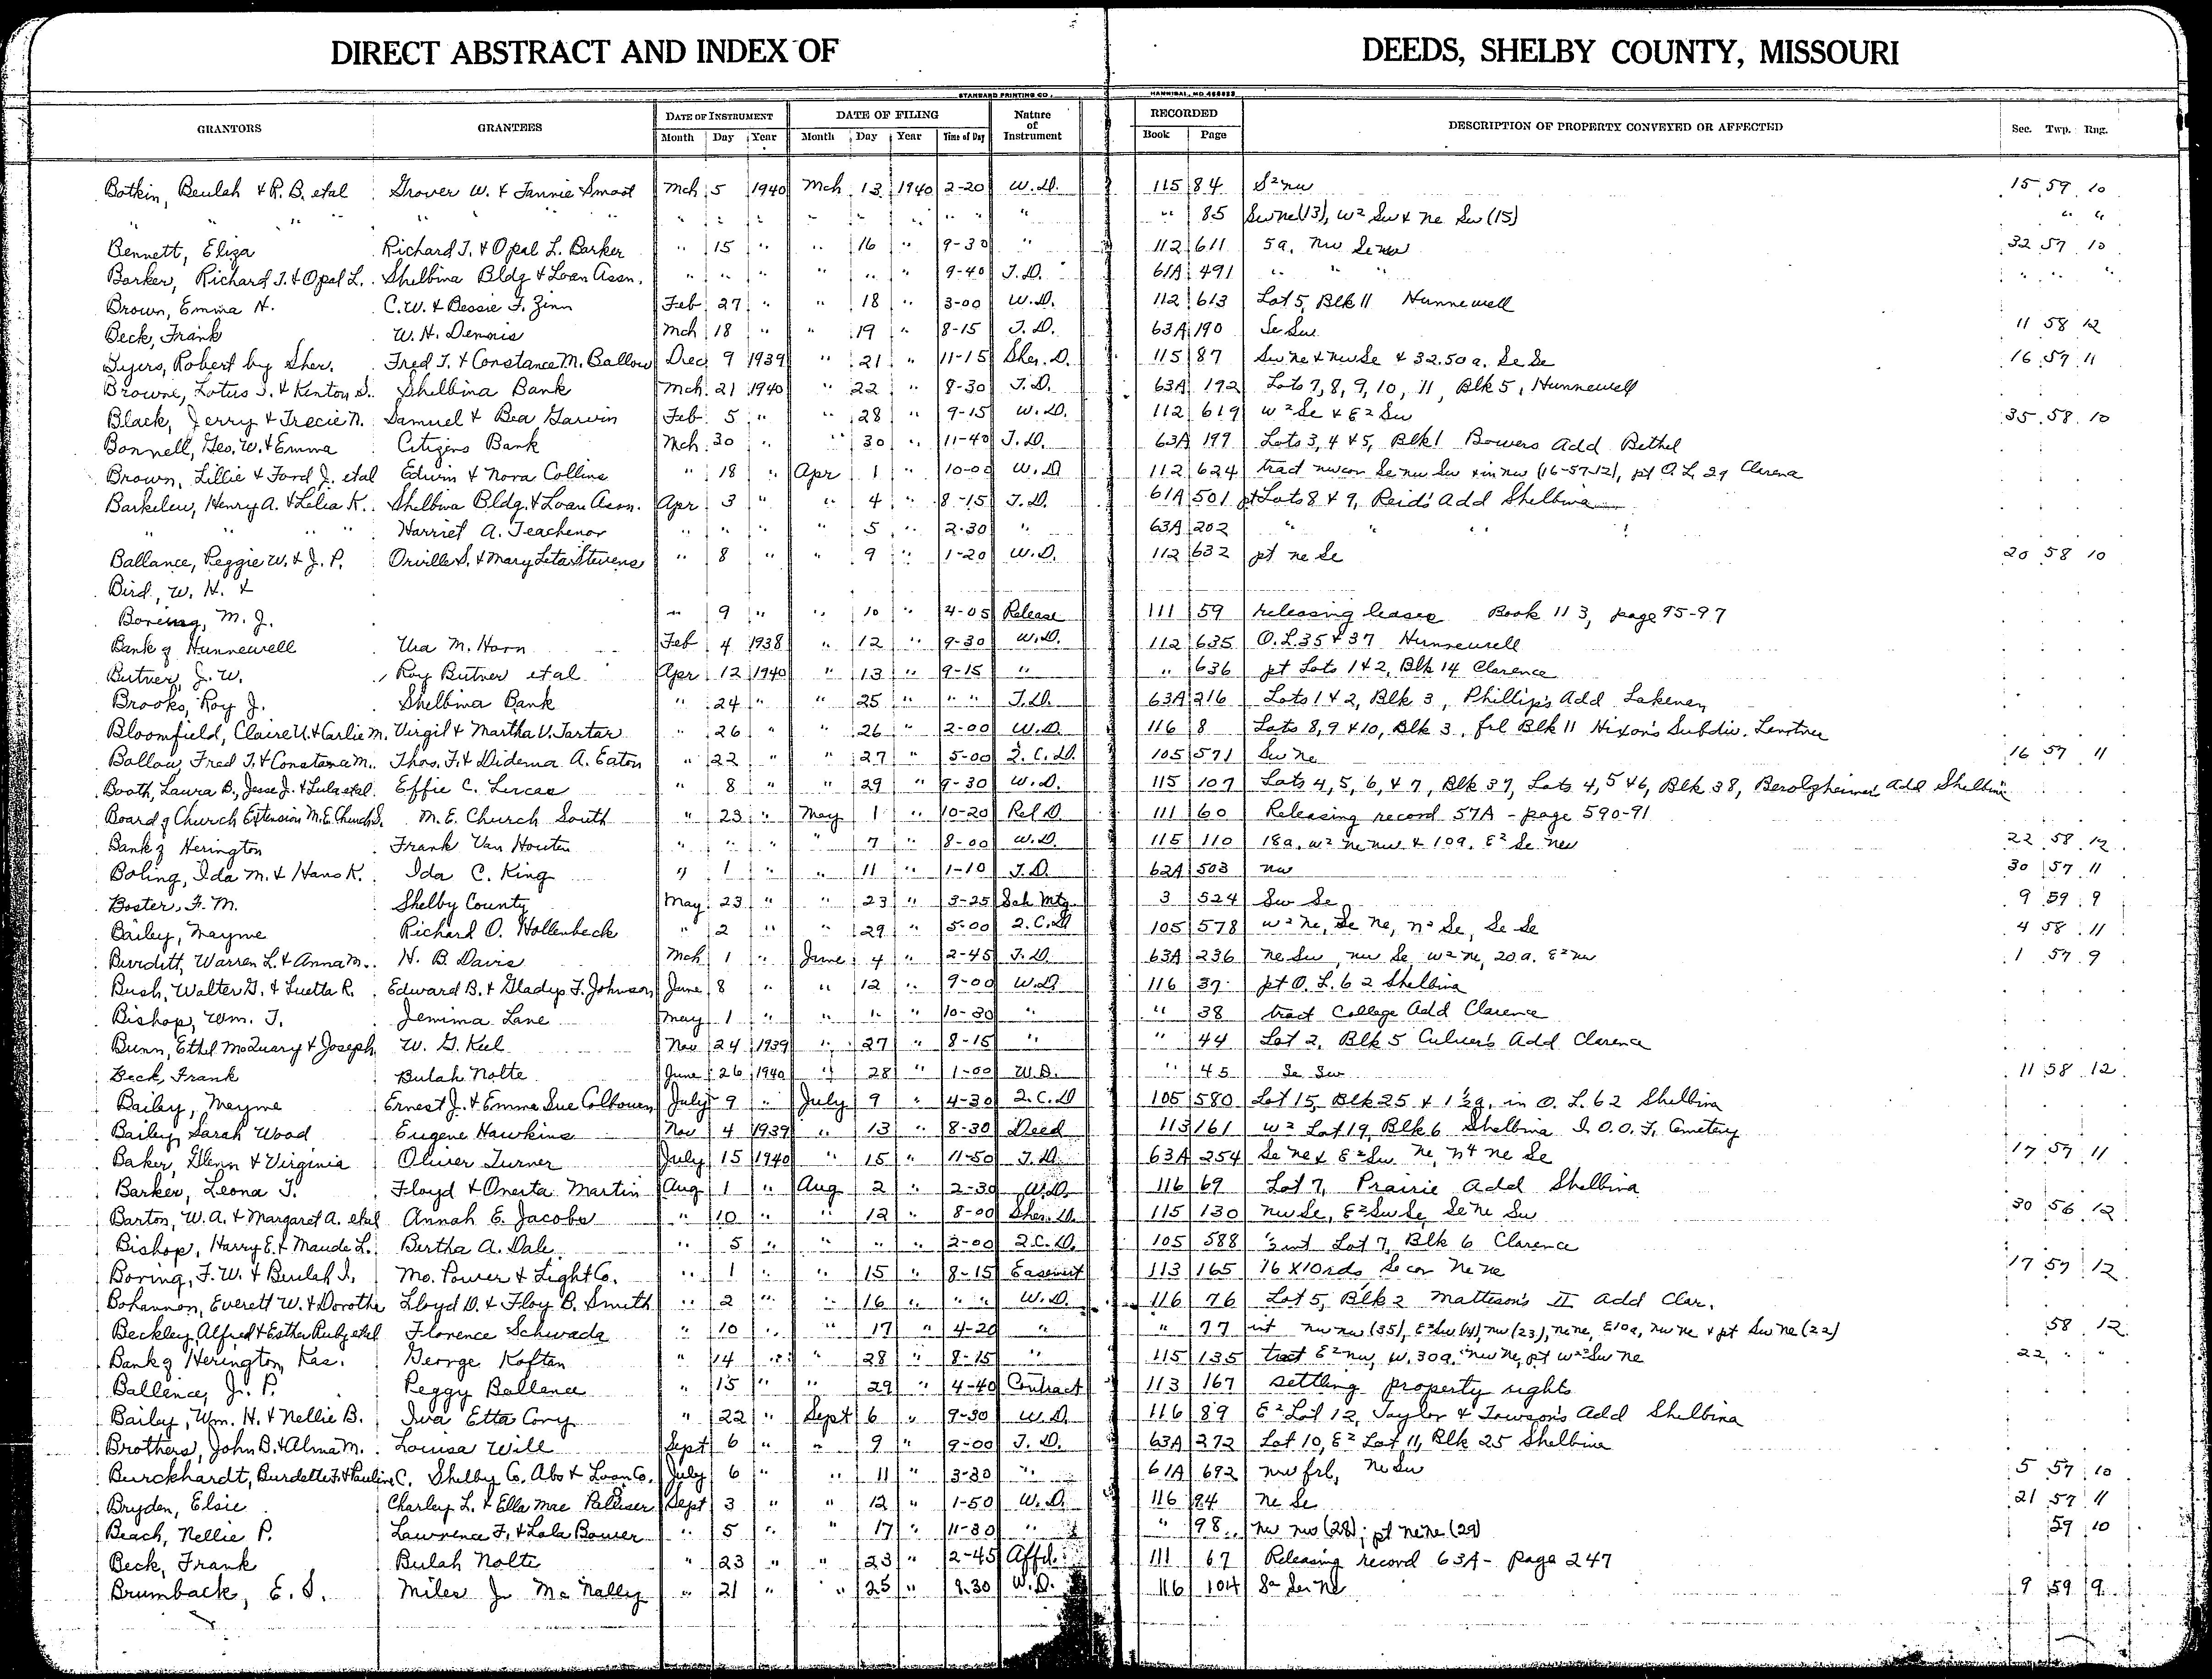 DIRECT ABSTRACT AND INDEX OF DEEDS, SHELBY COUNTY, MISSOURI
STANDARD PRINTING CO. HANNIBAL, MO
GRANTORS GRANTEES DATE OF INSTRUMENT DATE OF FILING Nature of Instrument RECORDED DESCRIPTION OF PROPERTY CONVEYED OR AFFECTED Sec. Twp. Rng.
Month Day Year Month Day Year Time of Day Book Page
Botkin, Beulah & R. B. etal Grover W. & Fannie Smoot Mch 5 1940 Mch 13 1940 2-20 W.D. 115 84 S² nw 15 59 10
" " " " " " " " " " " " " " " " 85 Sw ne (13), W² Sw & ne Sw (15) " "
Bennett, Eliza Richard T. & Opal L. Barker " 15 " " 16 " 9-30 " 112 611 5a. nw Se nw 32 57 10
Barker, Richard T. & Opal L. Shelbina Bldg & Loan Assn. " " " " " " 9-40 T.D. 61A 491 " " " " " "
Brown, Emma H. C.W. & Bessie F. Zinn Feb 27 " " 18 " 3-00 W.D. 112 613 Lot 5, Blk 11 Hunnewell
Beck, Frank W. H. Dennis Mch 18 " " 19 " 8-15 T.D. 63A 190 Se Sw 11 58 12
Byers, Robert by Sher. Fred T. & Constance M. Ballow Dec 9 1939 " 21 " 11-15 Sher. D. 115 87 Sw ne & nw Se & 32.50 a. Se Se 16 57 11
Browne, Lotus J. & Kenton S. Shelbina Bank Mch 21 1940 " 22 " 8-30 T.D. 63A 192 Lots 7, 8, 9, 10, 11, Blk 5, Hunnewell
Black, Jerry & Trecie N. Samuel & Bea Garvin Feb 5 " " 28 " 9-15 W.D. 112 619 W² Se & E² Sw 35 58 10
Bonnell, Geo. W. & Emma Citizens Bank Mch 30 " " 30 " 11-40 T.D. 63A 199 Lots 3, 4 & 5, Blk 1 Bowers Add Bethel
Brown, Lillie & Ford J. etal Edwin & Nora Collins " 18 " Apr 1 " 10-00 W.D 112 624 tract nw cor Se nw Sw & in nw (16-57-12), pt O.L. 29 Clarena
Barkelew, Henry A. & Lelia K. Shelbina Bldg. & Loan Assn. Apr 3 " " 4 " 8-15 T.D. 61A 501 pt Lots 8 & 9, Reid's Add Shelbina
" " " Harriet A. Teachenor " " " " 5 " 2-30 " 63A 202 " " " "
Ballance, Peggie W. & J. P. Orville S. & Mary Leta Stevens " 8 " " 9 " 1-20 W.D. 112 632 pt ne Se 20 58 10
Bird, W. H. &
Boreing, M. J. " 9 " " 10 " 4-05 Release 111 59 releasing leases Book 113, page 95-97
Bank of Hunnewell Ura M. Horn Feb 4 1938 " 12 " 9-30 W.D. 112 635 O.L 35 & 37 Hunnewell
Butner, J. W. Roy Butner etal Apr 12 1940 " 13 " 9-15 " " 636 pt Lots 1 & 2, Blk 14 Clarence
Brooks, Roy J. Shelbina Bank " 24 " " 25 " " " T.D. 63A 216 Lots 1 & 2, Blk 3, Phillip's Add Lakenan
Bloomfield, Claire U. & Carlie M. Virgil & Martha V. Tartar " 26 " " 26 " 2-00 W.D. 116 8 Lots 8, 9 & 10, Blk 3, frl Blk 11 Hixon's Subdiv. Lentner
Ballow, Fred T. & Constance M. Thos. F. & Didema A. Eaton " 22 " " 27 " 5-00 Q.C.D. 105 571 Sw ne 16 57 11
Booth, Laura B., Jesse J. & Lula etal Effie C. Lucas " 8 " " 29 " 9-30 W.D. 115 107 Lots 4, 5, 6, & 7, Blk 37, Lots 4, 5 & 6, Blk 38, Berolzheimer Add Shelbina
Board of Church Extension M.E. Church S. M. E. Church South " 23 " May 1 " 10-20 Rel D 111 60 Releasing record 57A - page 590-91
Bank of Herington Frank Van Houten " " " " 7 " 8-00 W.D. 115 110 18a. W² ne nw & 10a. E² Se nw 22 58 12
Boling, Ida M. & Hans K. Ida C. King " 1 " " 11 " 1-10 T.D. 62A 503 nw 30 57 11
Boster, F. M. Shelby County May 23 " " 23 " 3-25 Sch Mtg 3 524 Sw Se 9 59 9
Bailey, Mayme Richard O. Hollenbeck " 2 " " 29 " 5-00 Q.C.D 105 578 W² ne, Se ne, n² Se, Se Se 4 58 11
Burditt, Warren L. & Anna M. H. B. Davis Mch 1 " June 4 " 2-45 T.D. 63A 236 ne Sw, nw Se W² ne, 20 a. E² nw 1 57 9
Bush, Walter G. & Luetta R. Edward B. & Gladys F. Johnson June 8 " " 12 " 9-00 W.D 116 37 pt O. L. 62 Shelbina
Bishop, Wm. T. Jemima Lane May 1 " " " " 10-30 " " 38 tract College Add Clarence
Bunn, Ethel McQuary & Joseph W. G. Keil Nov 24 1939 " 27 " 8-15 " " 44 Lot 2, Blk 5 Culver's Add Clarence
Beck, Frank Bulah Nolte June 26 1940 " 28 " 1-00 W.D. " 45 Se Sw 11 58 12
Bailey, Mayme Ernest J. & Emma Sue Calhoun July 9 " July 9 " 4-30 Q.C.D 105 580 Lot 15, Blk 25 & 1½a. in O. L. 62 Shelbina
Bailey, Sarah Wood Eugene Hawkins Nov 4 1939 " 13 " 8-30 Deed 113 161 W² Lot 19, Blk 6 Shelbina I.O.O.F. Cemetery
Baker, Glenn & Virginia Oliver Turner July 15 1940 " 15 " 11-50 T.D. 63A 254 Se ne & E² Sw ne, n⁴ ne Se 17 57 11
Barker, Leona T. Floyd & Onerta Martin Aug 1 " Aug 2 " 2-30 W.D. 116 69 Lot 7, Prairie Add Shelbina
Barton, W. A. & Margaret A. etal Annah E. Jacobs " 10 " " 12 " 8-00 Sher. D. 115 130 nw Se, E² Sw Se, Se ne Sw 30 56 12
Bishop, Harry E. & Maude L. Bertha A. Dale " 5 " " " " 2-00 Q.C.D. 105 588 ⅓ int Lot 7, Blk 6 Clarence
Boring, F. W. & Beulah I. Mo. Power & Light Co. " 1 " " 15 " 8-15 Easement 113 165 16 X 10 rds Se cor ne ne 17 57 12
Bohannon, Everett W. & Dorotha Lloyd D. & Floy B. Smith " 2 " " 16 " " " W.D. 116 76 Lot 5, Blk 2 Mattison's II Add Clar.
Beckley, Alfred & Esther Ruby etal Florence Schwada " 10 " " 17 " 4-20 " " 77 int nw nw (35), E² Sw (14), nw (23), ne ne, E10a, nw ne & pt Sw ne (22) 58 12
Bank of Herington, Kas. George Kaftan " 14 " " 28 " 8-15 " 115 135 tract E² nw, W. 30a. nw ne, pt W² Sw ne 22 " "
Ballance, J. P. Peggy Ballance " 15 " " 29 " 4-40 Contract 113 167 settling property rights
Bailey, Wm. H. & Nellie B. Iva Etta Cory " 22 " Sept 6 " 9-30 W.D. 116 89 E² Lot 12, Taylor & Towson's Add Shelbina
Brothers, John B. & Alma M. Louisa Will Sept 6 " " 9 " 9-00 T.D. 63A 272 Lot 10, E² Lot 11, Blk 25 Shelbina
Burckhardt, Burdette F. & Pauline C. Shelby Co. Abs & Loan Co. July 6 " " 11 " 3-30 " 61A 692 nw frl, ne Sw 5 57 10
Bryden, Elsie Charley L. & Ella Mae Palliser Sept 3 " " 12 " 1-50 W.D. 116 94 ne Se 21 57 11
Beach, Nellie P. Lawrence F. & Lola Bouser " 5 " " 17 " 11-30 " " 98 nw nw (28); pt ne ne (29) 59 10
Beck, Frank Bulah Nolte " 23 " " 23 " 2-45 Affd. 111 67 Releasing record 63A - page 247
Brumback, E. S. Miles J. McNalley " 21 " " 25 " 8.30 W.D. 116 104 Se ne 9 59 9